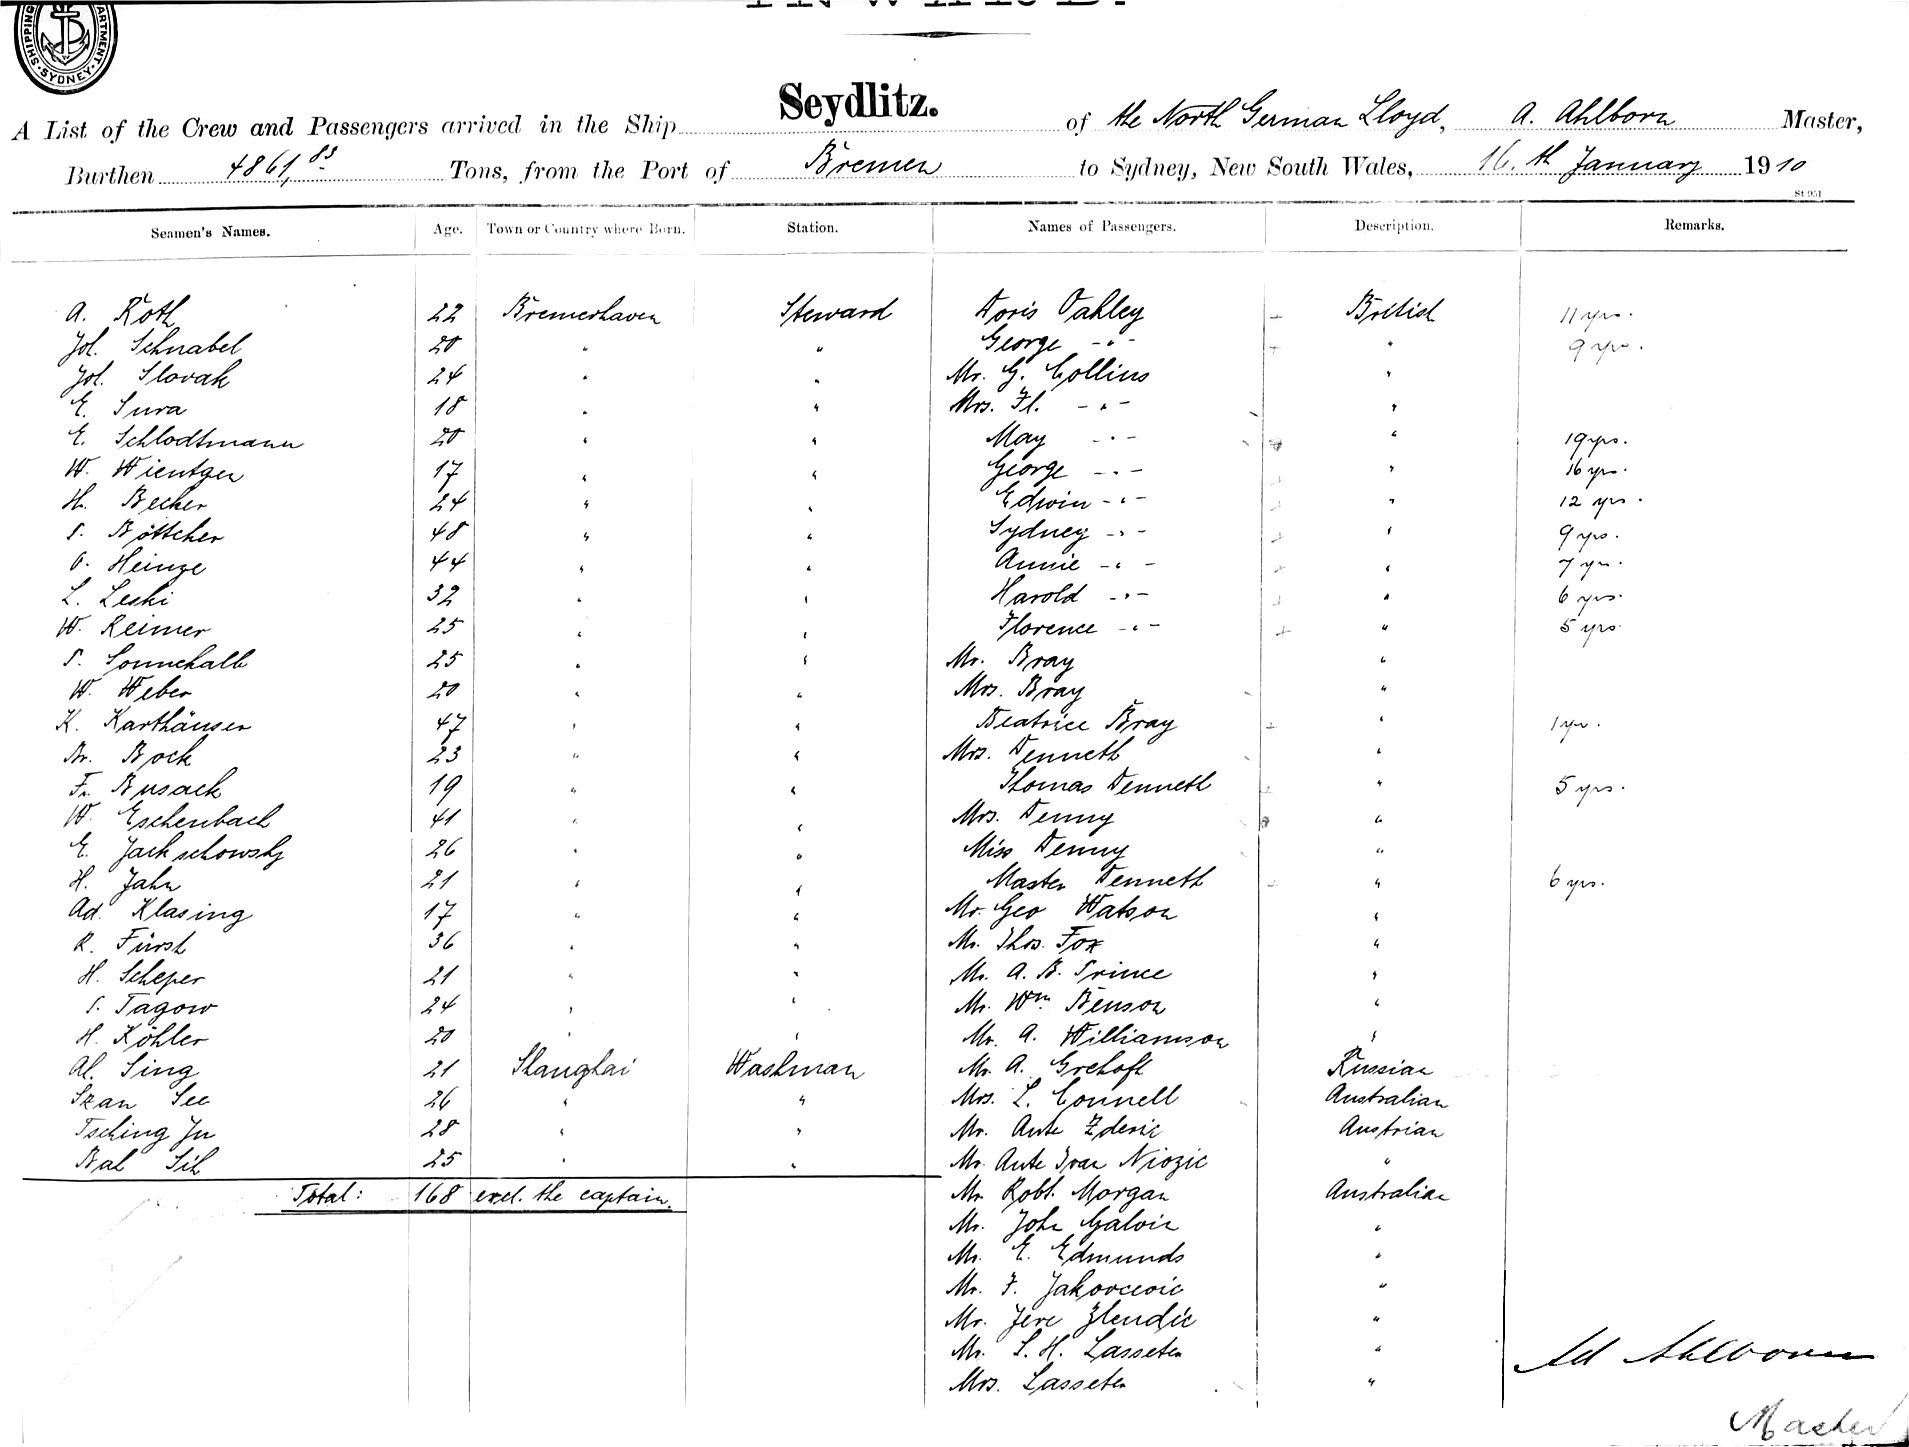 INWARD.
SHIPPING DEPARTMENT. SYDNEY.
Seydlitz.
A List of the Crew and Passengers arrived in the Ship Seydlitz. of the North German Lloyd, A. Ahlborn Master,
Burthen 4861,83 Tons, from the Port of Bremen to Sydney, New South Wales, 16.th January 1910
St 951
Seamen's Names. Age. Town or Country where Born. Station. Names of Passengers. Description. Remarks.
A. Roth 22 Bremerhaven Steward Doris Oakley + British 11 yrs.
Jos. Schnabel 20 " " George -"- + " 9 yrs.
Jos. Slovak 24 " " Mr. G. Collins "
E. Sura 18 " " Mrs. Fl. -"- "
E. Schlodtmann 20 " " May -"- " 19 yrs.
W. Wientger 17 " " George -"- + " 16 yrs.
H. Becker 24 " " Edwin -"- + " 12 yrs.
P. Böttcher 48 " " Sydney -"- + " 9 yrs.
O. Heinze 44 " " Annie -"- + " 7 yrs.
L. Leski 32 " " Harold -"- + " 6 yrs.
W. Reimer 25 " " Florence -"- + " 5 yrs.
P. Sonnekalb 25 " " Mr. Bray "
W. Weber 20 " " Mrs. Bray "
K. Karthäuser 47 " " Beatrice Bray + " 1 yr.
Br. Bock 23 " " Mrs. Denneth "
Fr. Busack 19 " " Thomas Denneth + " 5 yrs.
W. Eschenbach 41 " " Mrs. Denny "
E. Jackschowsky 26 " " Miss Denny "
H. Jahn 21 " " Master Denneth + " 6 yrs.
Ad. Klasing 17 " " Mr. Geo Watson "
R. Fürst 36 " " Mr. Thos. Fox "
H. Scheper 21 " " Mr. A. B. Prince "
P. Tagow 24 " " Mr. Wm Benson "
H. Köhler 20 " " Mr. A. Williamson "
Al. Sing 21 Shanghai Washman Mr. A. Grehoft Russian
Szan See 26 " " Mrs. L. Connell Australian
Tsching Ju 28 " " Mr. Ante Zderic Austrian
Bal Sih 25 " " Mr. Ante Ivan Niozic "
Total: 168 excl. the captain. Mr Robt. Morgan Australian
Mr. John Galvin "
Mr. E. Edmunds "
Mr. F. Jakovcevic "
Mr. Jere Zlendic "
Mr. S. H. Lasseter "
Mrs. Lasseter "
Ad Ahlborn
Master